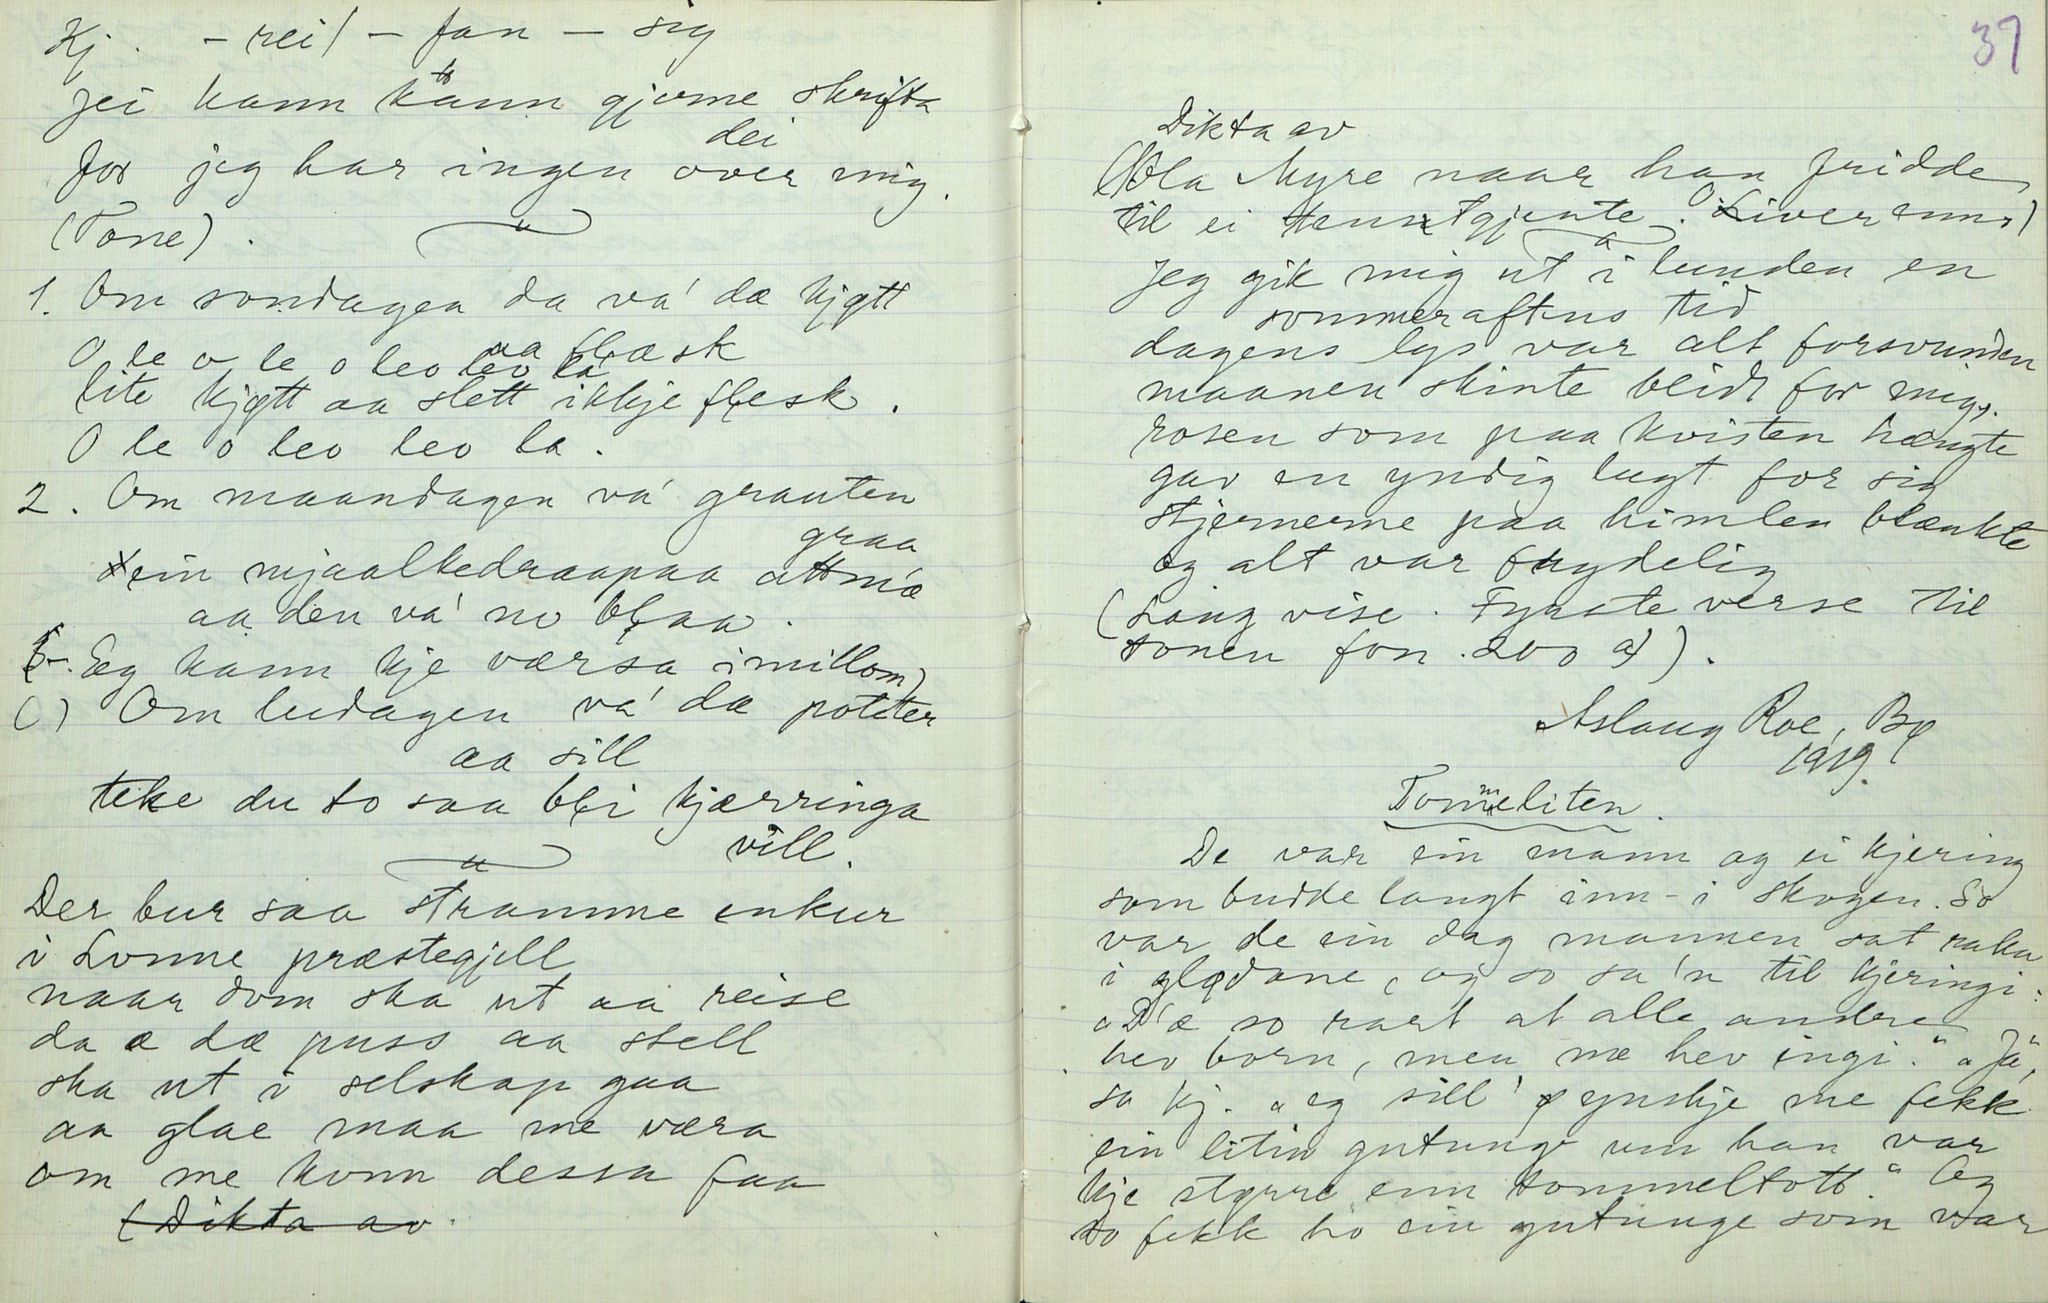 Kj. – rei / – fan – sig
Jei kann kann gjerne skrifta
dei
for jeg har ingen over mig.
(Tone).
1. Om sondagen da va' dæ kjøtt
aa flæsk
O le o le o leo leo la
lite kjøtt aa slett ikkje flesk.
O le o leo leo la.
2. Om maandagen va' grauten
graa
ein mjaalkedraapaa attmæ
aa den va' no blaa.
Eg kann kjeværsa imillom)
() Om ludagen va' dæ poteter
aa sill
teke du to saa bli kjærringa
vill.
Der bur saa stramme enkur
i Lonne præstegjell
naar dom ska ut aa reise
da æ dæ puss aa stell
ska ut i selskap gaa
aa glae maa me væra
om me konn dessa faa
(Dikta av
37
Dikta av
(Ola Myre naar han fridde
til ei gjente. Liver enno)
Jeg gik mig ut i lunden en
sommeraftens tid
dagens lys var alt forsvunden
maanen skinte blidt for mig.
rosen som paa kvisten hængte
gav en yndig lugt for sig
stjernerne paa himlen blænkte
og alt var frydelig
(Laang vise. Fyrste verse til
tonen fon. 200 a)).
Aslaug Roe, Bø
1919.
Tommeliten.
De var ein mann og ei kjering
som budde langt inn-i skogen. So
var de ein dag mannen sat raka
i glødane, og so sa'n til kjeringi:
"D'æ so rart at alle andre
hev born, men me hev ingi." "Ja",
sa kj. "eg sill' ynskje me fekk
ein liten gutunge um han var
kje større enn tommeltott." Og
so fekk ho ein gutunge som var